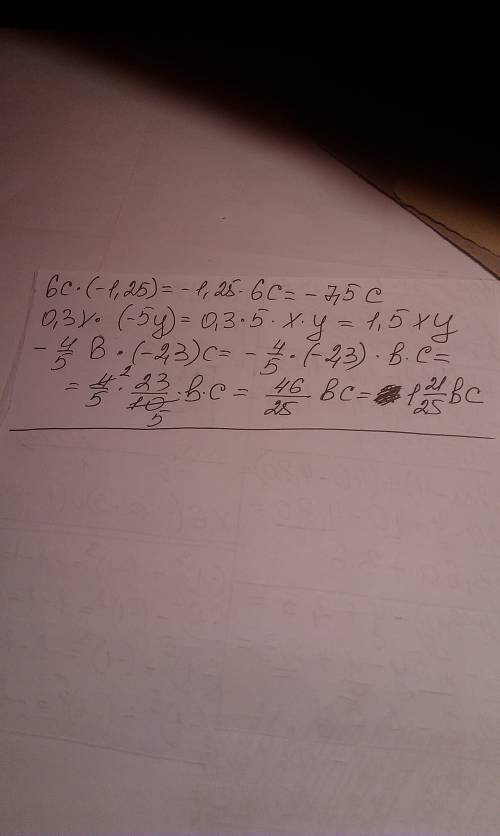 6c·(-1,25)=-1,25·6c=-7,5c
0,3x·(-5y)=0,3·5·x·y=1,5xy
-4/5 в·(-2,3)c=-4/5·(-2,3)·в·c=
=4/5·23/10·в·c=46/25 вc=1 21/25 вc